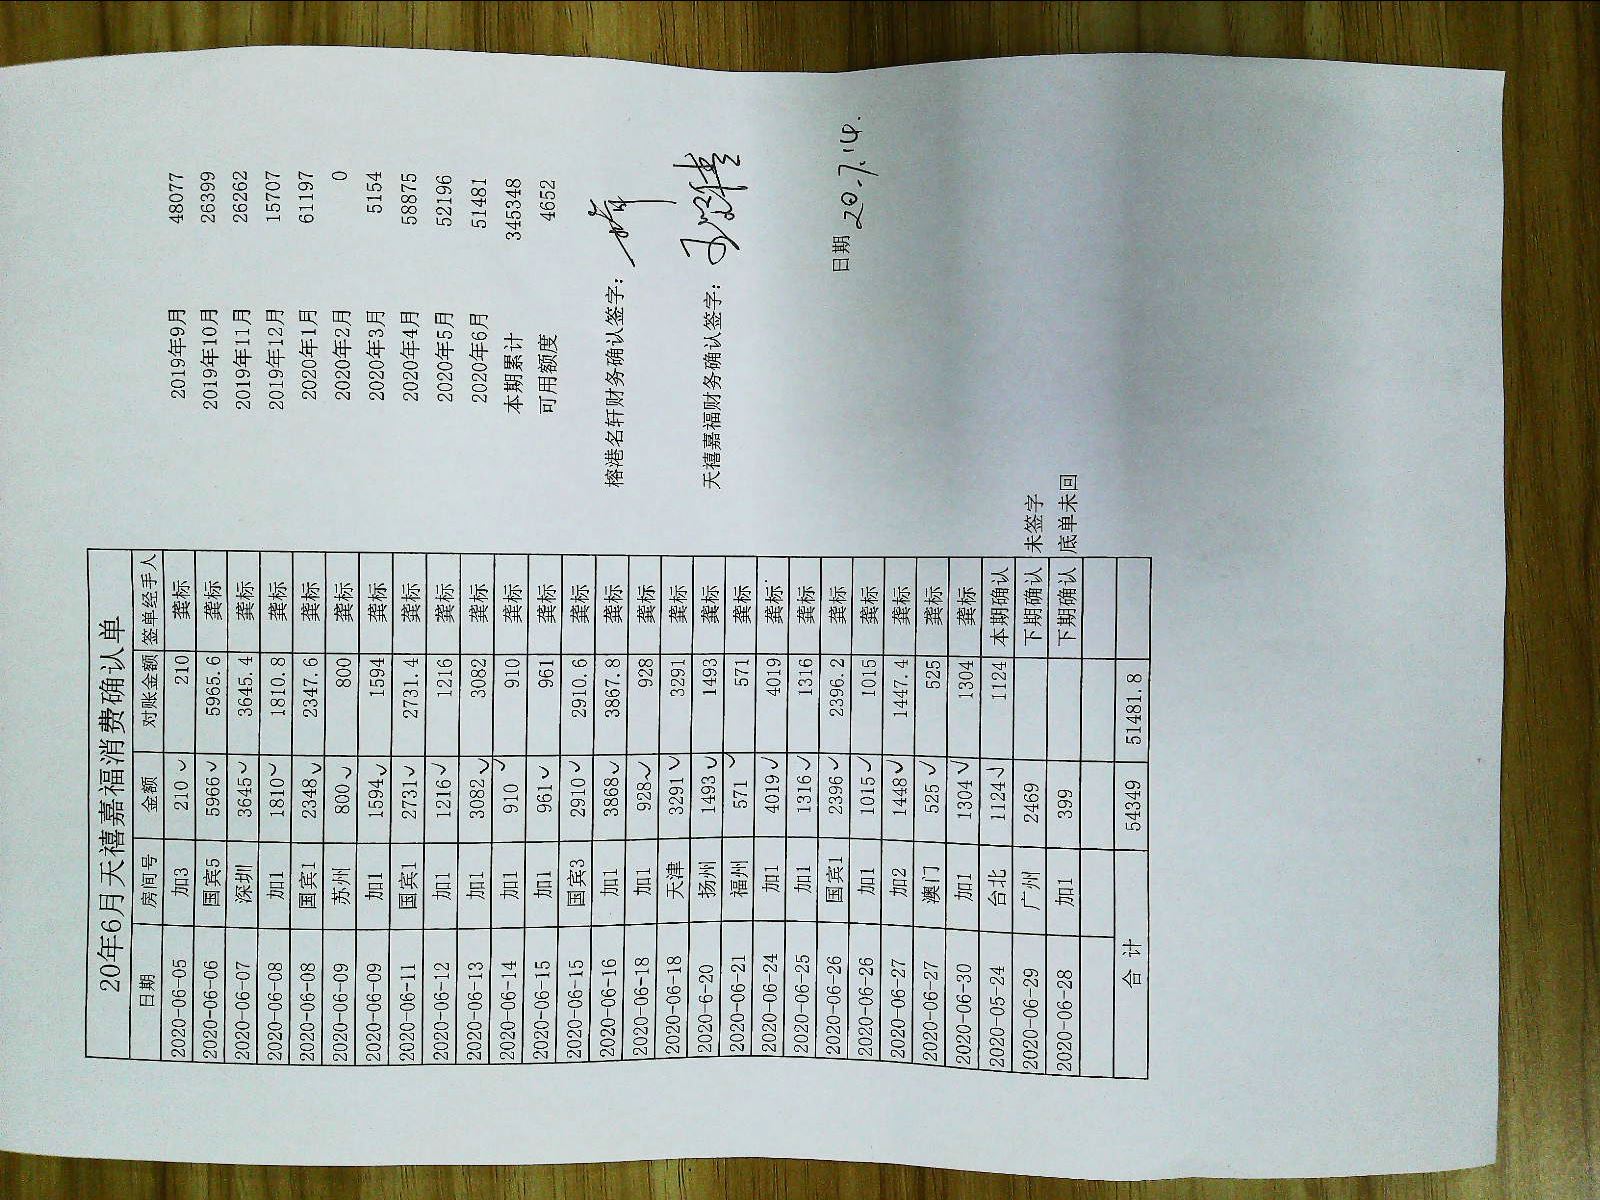 20年6月天禧嘉福消费确认单
日期 房间号 金额 对账金额 签单经手人
2020-06-05 加3 210 210 龚标
2020-06-06 国宾5 5966 5965.6 龚标
2020-06-07 深圳 3645 3645.4 龚标
2020-06-08 加1 1810 1810.8 龚标
2020-06-08 国宾1 2348 2347.6 龚标
2020-06-09 苏州 800 800 龚标
2020-06-09 加1 1594 1594 龚标
2020-06-11 国宾1 2731 2731.4 龚标
2020-06-12 加1 1216 1216 龚标
2020-06-13 加1 3082 3082 龚标
2020-06-14 加1 910 910 龚标
2020-06-15 加1 961 961 龚标
2020-06-15 国宾3 2910 2910.6 龚标
2020-06-16 加1 3868 3867.8 龚标
2020-06-18 加1 928 928 龚标
2020-06-18 天津 3291 3291 龚标
2020-6-20 扬州 1493 1493 龚标
2020-06-21 福州 571 571 龚标
2020-06-24 加1 4019 4019 龚标
2020-06-25 加1 1316 1316 龚标
2020-06-26 国宾1 2396 2396.2 龚标
2020-06-26 加1 1015 1015 龚标
2020-06-27 加2 1448 1447.4 龚标
2020-06-27 澳门 525 525 龚标
2020-06-30 加1 1304 1304 龚标
2020-05-24 台北 1124 1124 本期确认
2020-06-29 广州 2469 下期确认 未签字
2020-06-28 加1 399 下期确认 底单未回
合计 54349 51481.8
2019年9月 48077
2019年10月 26399
2019年11月 26262
2019年12月 15707
2020年1月 61197
2020年2月 0
2020年3月 5154
2020年4月 58875
2020年5月 52196
2020年6月 51481
本期累计 345348
可用额度 4652
榕港名轩财务确认签字：
天禧嘉福财务确认签字：
日期 20.7.14.